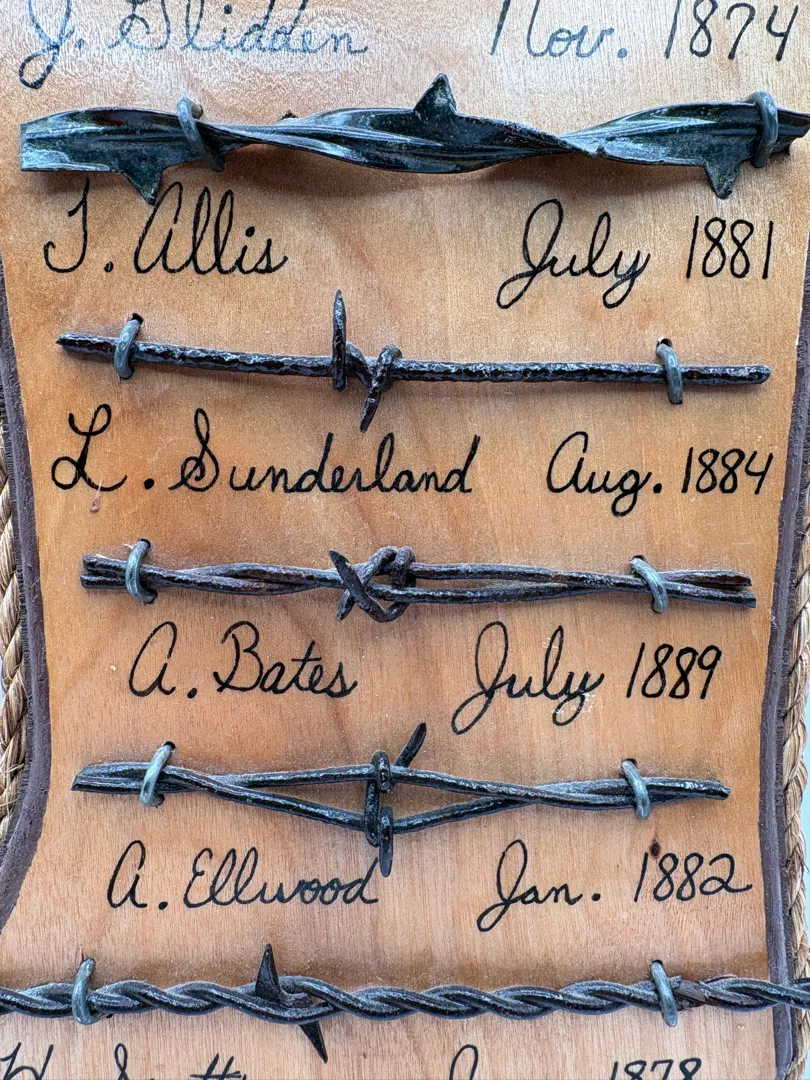 J. Glidden Nov. 1874
T. Allis July 1881
L. Sunderland Aug. 1884
A. Bates July 1889
A. Ellwood Jan. 1882
1878